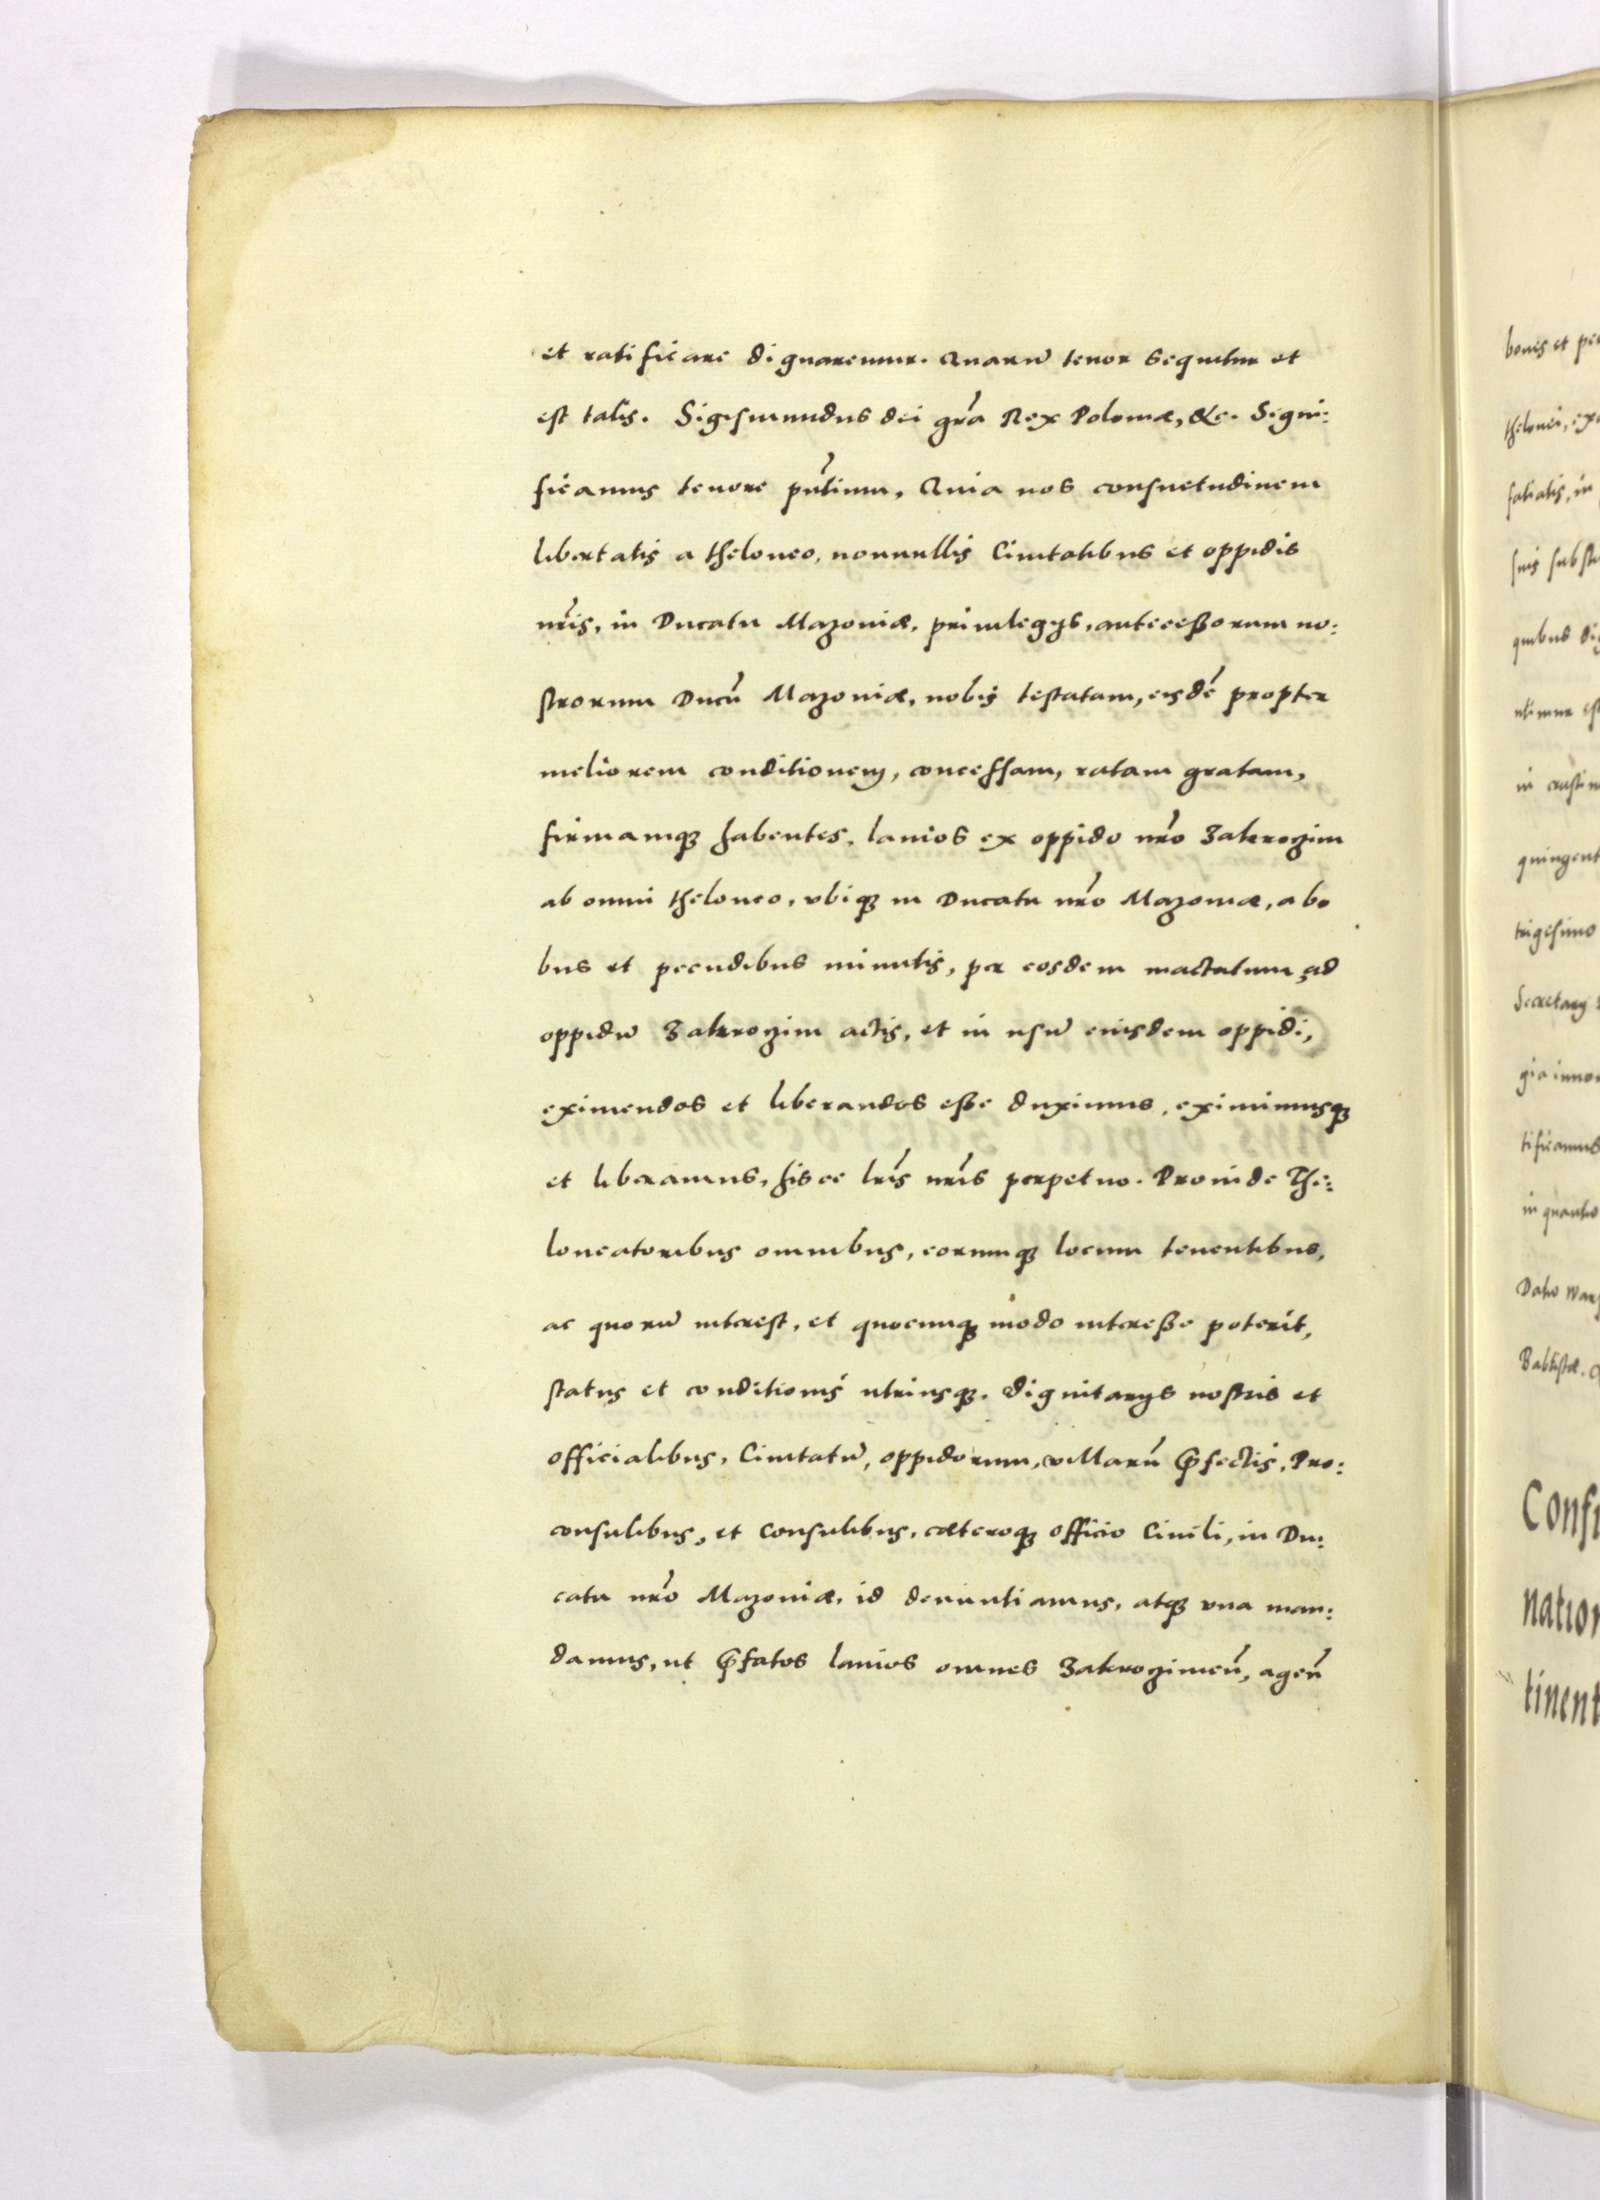 et ratificare dignaremur. Quarū tenor sequitur et
est talis. Sigismundus dei gr̃a Rex Poloniæ, &c. Signi:
ficamus tenore pñtium, Quia nos consuetudinem
libertatis a theloneo, nonnullis Ciuitatibus et oppidis
nr̃is, in Ducatu Mazoniæ, priuilegijs, anteceßorum no:
strorum Ducū Mazoniæ, nobis testatam, eisdē propter
meliorem conditionem, concessam, ratam gratam,
firmamqꜫ habentes, lanios ex oppido nr̃o Zakrozim
ab omni theloneo, vbiqꜫ in Ducatu nr̃o Mazoniæ, a bo
bus et pecudibus minutis, per eosdem mactatum, ad
oppidū Zakrozim actis, et in usū eiusdem oppidi,
eximendos et liberandos eße duximus, eximimusqꜫ
et liberamus, hisce lr̃is nr̃is perpetuo. Prouide The:
loneatoribus omnibus, eorumqꜫ locum tenentibus,
ac quorū interest, et quocunqꜫ modo intereße poterit,
status et conditionis utriusqꜫ. Dignitarijs nostris et
officialibus, Ciuitatū, oppidorum, villarū p̃fectis, Pro:
consulibus, et Consulibus, cæteroqꜫ officio Ciuili, in Du:
catu nr̃o Mazoniæ, id denuntiamus, atqꜫ vna man:
damus, ut p̃fatos lanios omnes Zakrozimeñ, ageñ
boues et
thelonei,
in
suis
quibus
in
trigesimo
in
Confi
nation
tinent